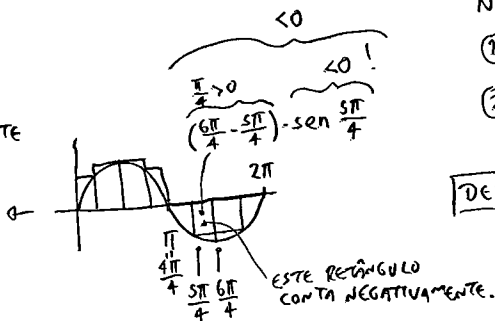 <0
<0 !
N
π/4 > 0
TE
(6π/4 - 5π/4) · sen 5π/4
2π
DE
π
=
4π/4
5π/4 6π/4
ESTE RETÂNGULO
CONTA NEGATIVAMENTE.